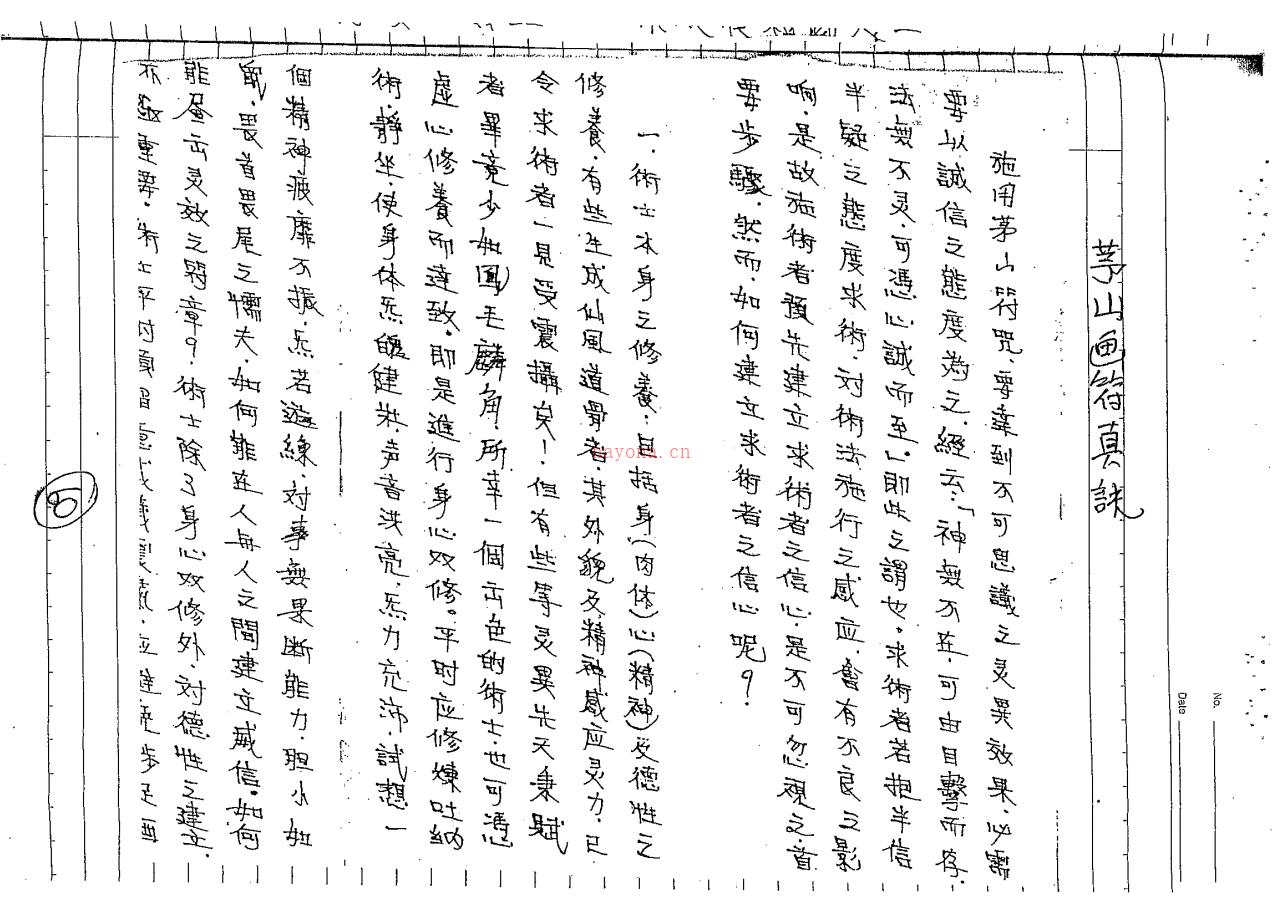 茅山画符真訣
施用茅山符咒，要達到不可思議之灵異效果，必需
要以誠信之態度為之，經云：「神無不在，可由目擊而存，
法無不灵，可憑心誠而至」即此之謂也。求術者若抱半信
半疑之態度求術，対術法施行之感应，會有不良之影
响，是故施術者預先建立求術者之信心，是不可忽視之首
要步驟，然而，如何建立求術者之信心呢？
一、術士本身之修養：包括身（肉体）心（精神）及德性之
修養，有些生成仙風道骨者，其外貌及精神感应灵力，已
令求術者一見受震攝矣！但有些等灵異先天秉賦
者畢竟少如鳳毛麟角，所幸一個出色的術士，也可憑
虛心修養而達致，即是進行身心双修。平时应修煉吐納
術，靜坐，使身体炁魄健壯，声音洪亮，炁力充沛，試想一
個精神疲靡不振，炁若遊絲，対事無果断能力，胆小如
鼠，畏首畏尾之懦夫，如何能在人與人之間建立威信，如何
能画出灵效之符章？術士除了身心双修外，対德性之建立，
亦
重要，術士平时須留意
8
No.
Date
cayona.cn